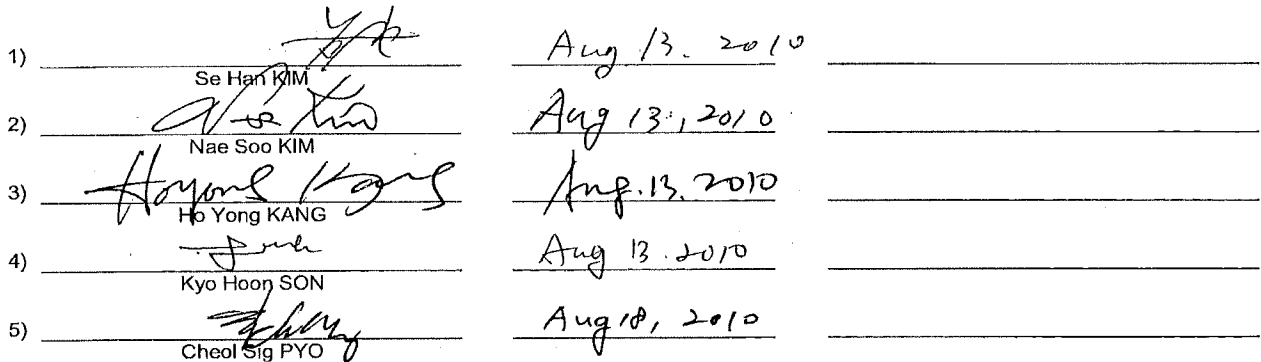 1) Aug 13. 2010
Se Han KIM
2) Aug 13, 2010
Nae Soo KIM
3) Hoyong Kang Aug. 13. 2010
Ho Yong KANG
4) Aug 13. 2010
Kyo Hoon SON
5) Aug 18, 2010
Cheol Sig PYO